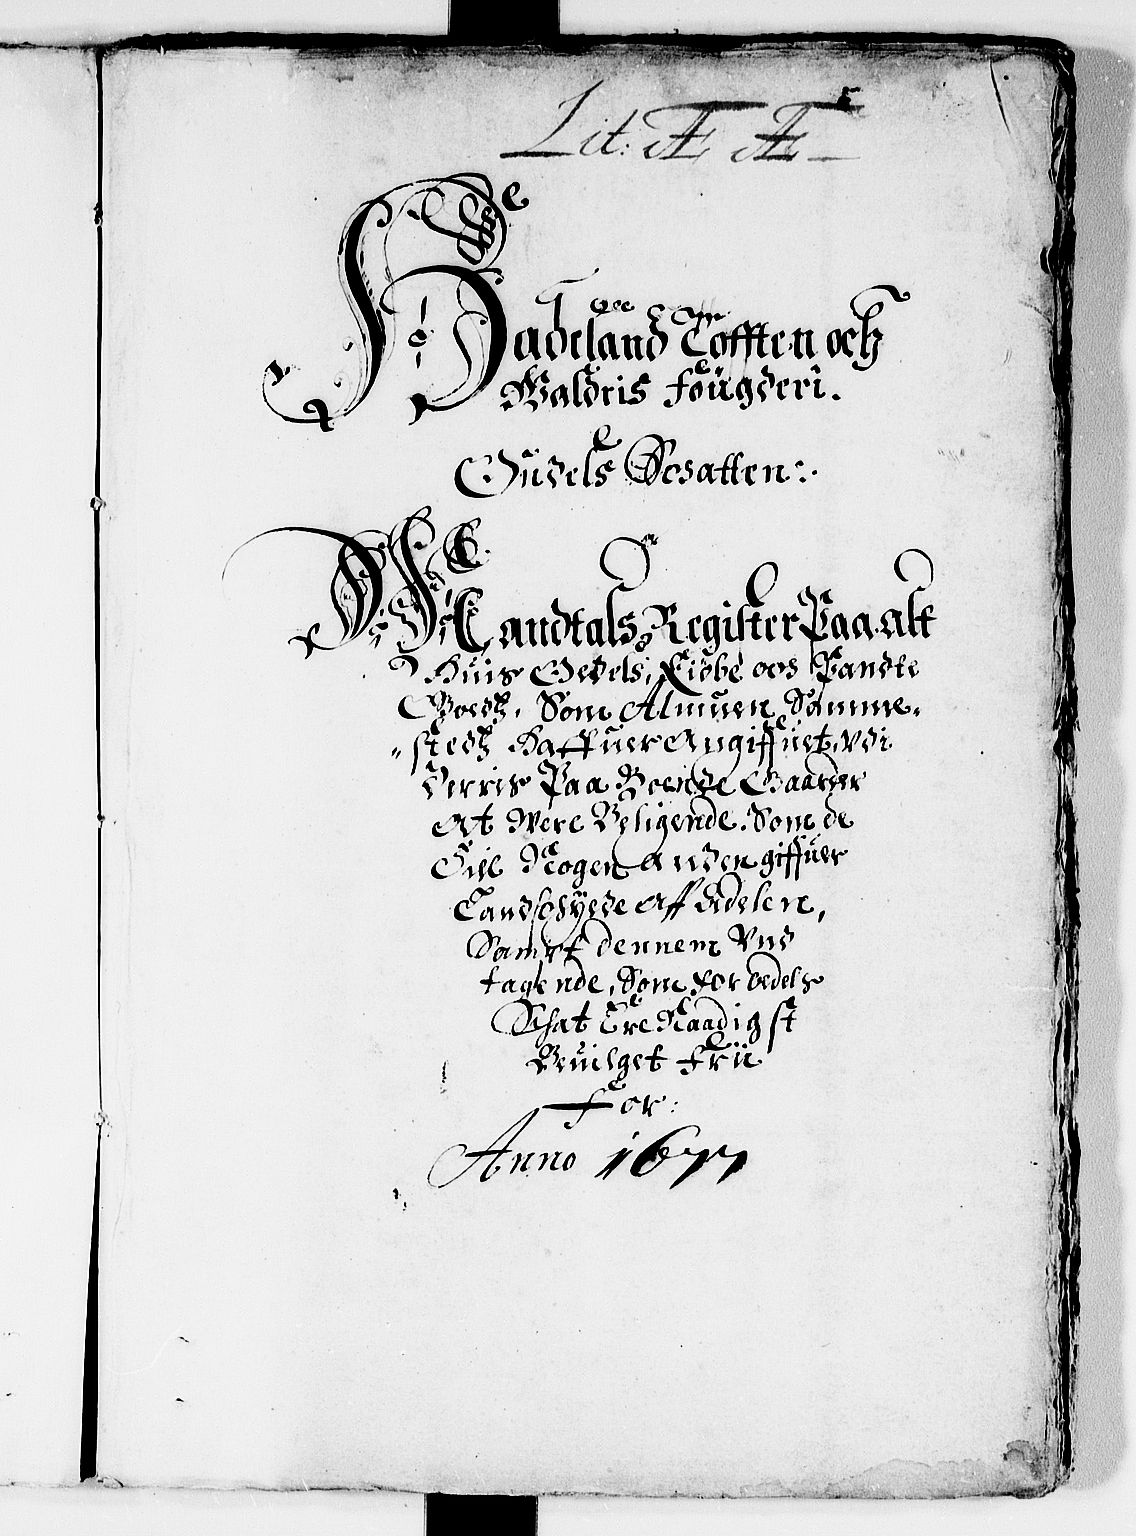 Lit: Æ Æ
Hadeland Tofften och
Waldris fougderi.
Oudels Schatten:.
Mandtals Register Paa alt
Huis Oedels, Kiøbe oos Pandte
Goedz, Som Almuen Samme-
-stedz Haffuer Angiffuet, vdi
Derris Paa Boende Gaarder
At Were Beligende. Som de
Ei Nogen Anden giffuer
Landschylde Aff Adelen,
Sampt dennem Vnd
tagende, Som for oedels
Schat Ere Naadigst
Beuilget frii
For:
Anno 1677